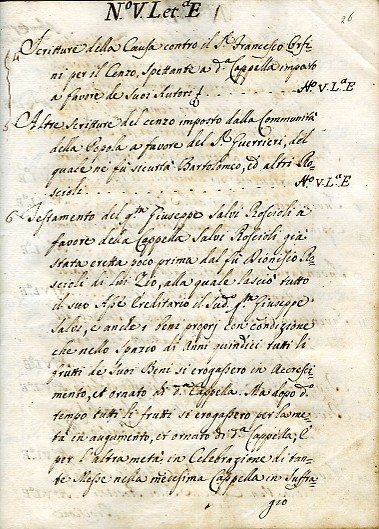 N.º V. L.et.ª E
26
4 Scritture della Causa contro il S.r Francesco Orsi-
ni per il Cenzo, Spettante a d.ª Cappella imposto
a favore de Suoi Autori
N.º V. L.ª E
5 Altre Scritture del cenzo imposto dalla Communità
della Pegola a favore del S.r Guerrieri, del
quale ne fù sicurtà Bartolomeo, ed altri Ro-
scioli
N.º V. L.ª E
6 Testamento del q.m Giuseppe Salvi Roscioli à
favore della Cappella Salvi Roscioli già
stata eretta poco prima dal fù Dionisio Ro-
scioli di lui Zio, alla quale lasciò tutto
il suo Asse Ereditario il Sud.º q.m Giuseppe
Salvi, e anche i beni propri con condizione
che nello Spazio di Anni quindici tutti li
frutti de Suoi Beni si erogassero in Accresci-
mento, et ornato di d.ª Cappella. Ma dopo d.º
tempo tutti li frutti si erogassero per la me-
tà in augumento, et ornato di d.ª Cappella, e
per l'altra metà in Celebrazione di tan-
te Messe nella medesima Cappella in Suffra-
gio